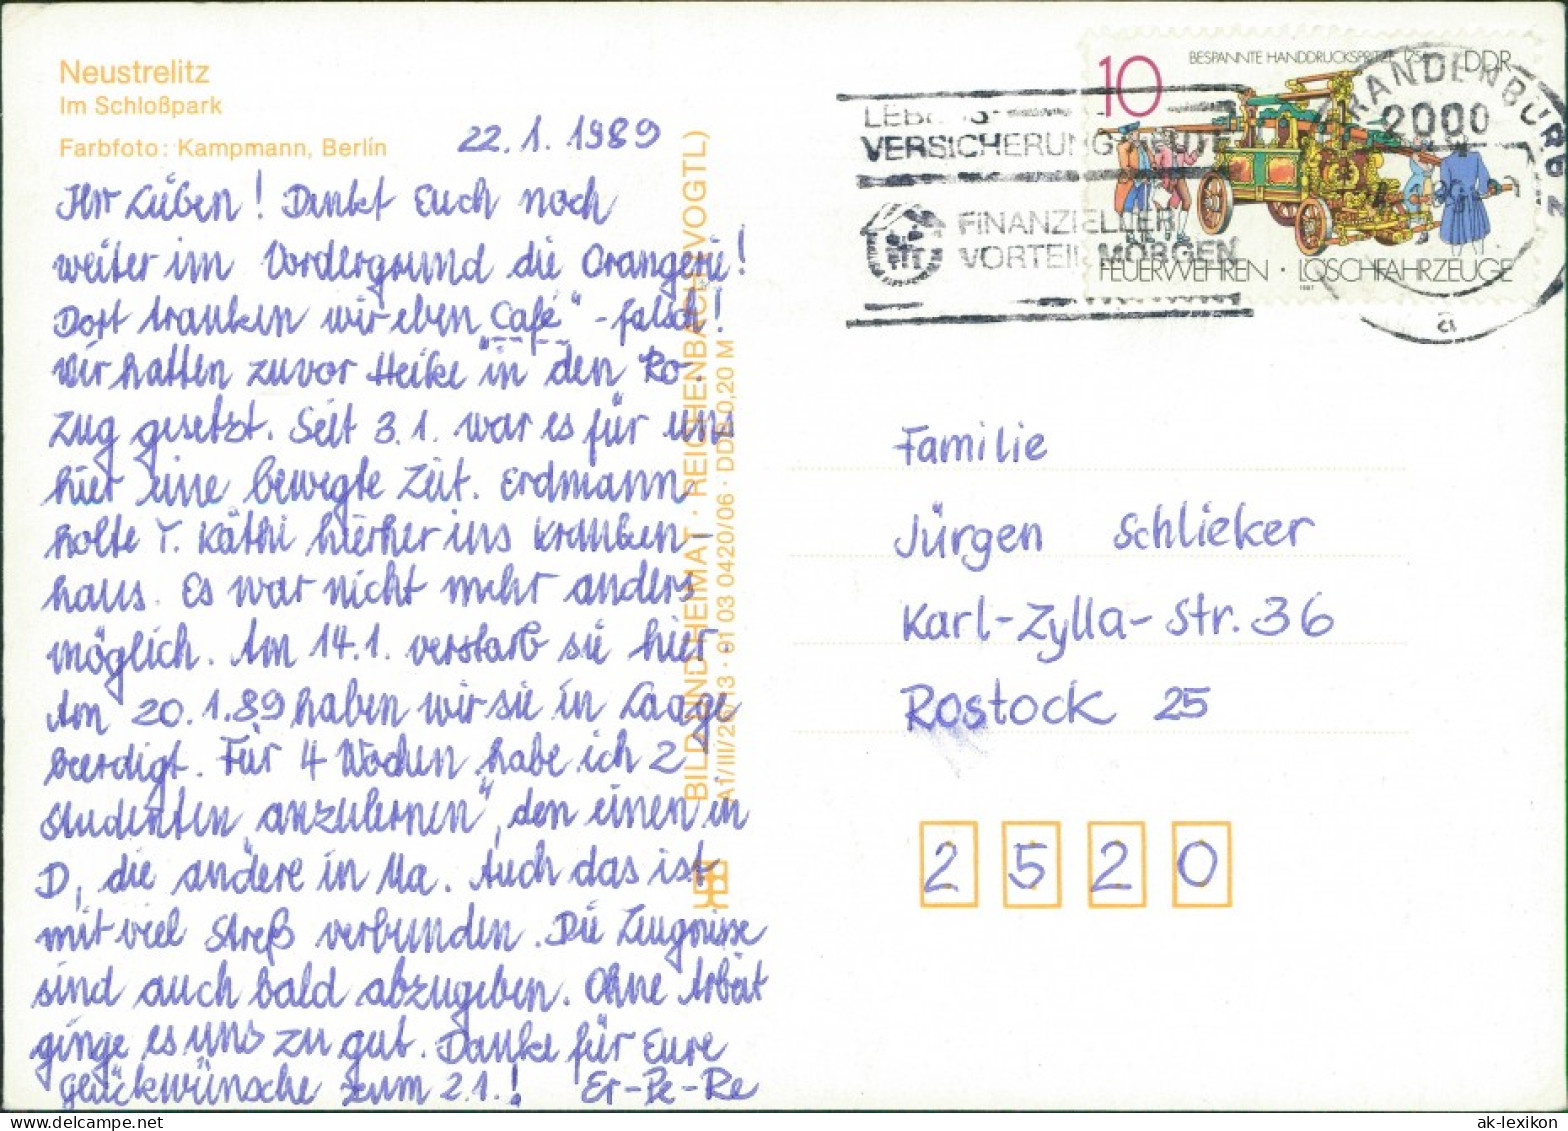 Neustrelitz
Im Schloßpark
Farbfoto: Kampmann, Berlin
22.1.1989
Ihr Lieben! Denkt Euch noch
weiter im Vordergrund die Orangerie!
Dort tranken wir eben „Café" - falsch!
Wir hatten zuvor Heike in den Ro-
Zug gesetzt. Seit 3.1. war es für uns
hier eine bewegte Zeit. Erdmann
holte T. Käthi hierher ins Kranken-
haus. Es war nicht mehr anders
möglich. Am 14.1. verstarb sie hier.
Am 20.1.89 haben wir sie in Laage
beerdigt. Für 4 Wochen habe ich 2
Studenten „anzulernen", den einen in
D, die andere in Ma. Auch das ist
mit viel Streß verbunden. Die Zeugnisse
sind auch bald abzugeben. Ohne Arbeit
ginge es uns zu gut. Danke für Eure
Glückwünsche zum 2.1.! Er-Pe-Re
BILD UND HEIMAT · REICHENBACH (VOGTL)
A1/III/26/13 · 01 03 0420/06 · DDR 0,20 M
LEBENS-
VERSICHERUNG HEUTE
FINANZIELLER
VORTEIL MORGEN
10
BESPANNTE HANDDRUCKSPRITZE 1756
DDR
FEUERWEHREN · LÖSCHFAHRZEUGE
1987
BRANDENBURG 2
2000
a
Familie
Jürgen Schlieker
Karl-Zylla-Str. 36
Rostock 25
2 5 2 0
ak-lexikon